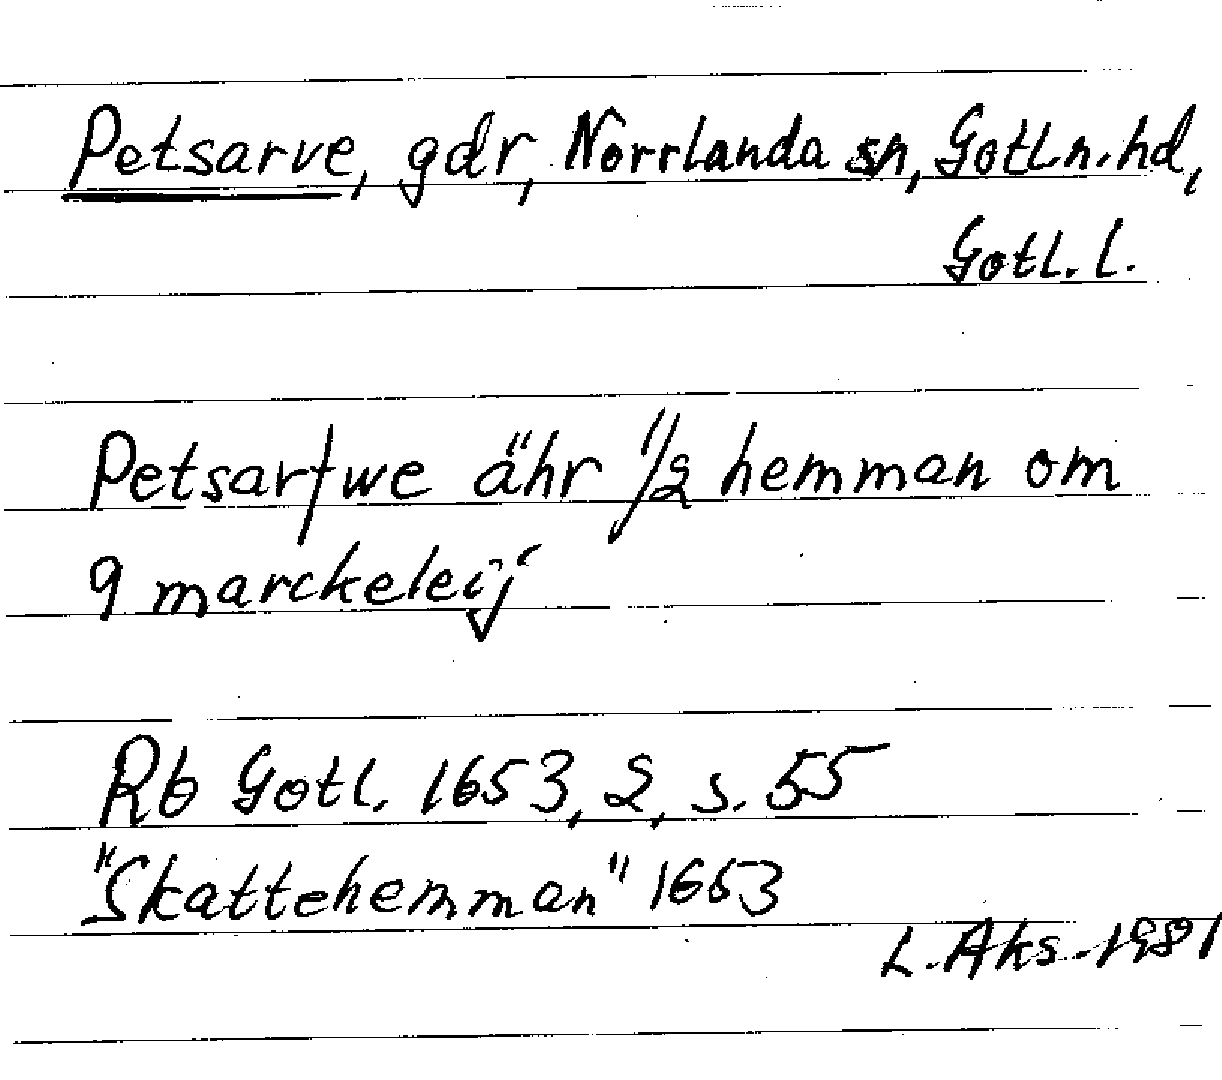 Petsarve, gdr, Norrlanda sn, Gotl.n.hd,
Gotl. l.
Petsarfwe ähr 1/2 hemman om
9 marckeleij
Rb Gotl. 1653, 2, s. 55
"Skattehemman" 1653
L. Aks. 1981